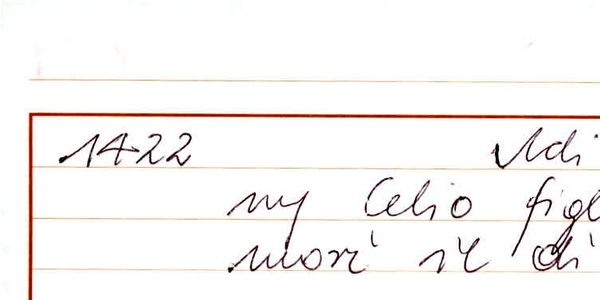 1422 Adi
my Celio figl
morì il di